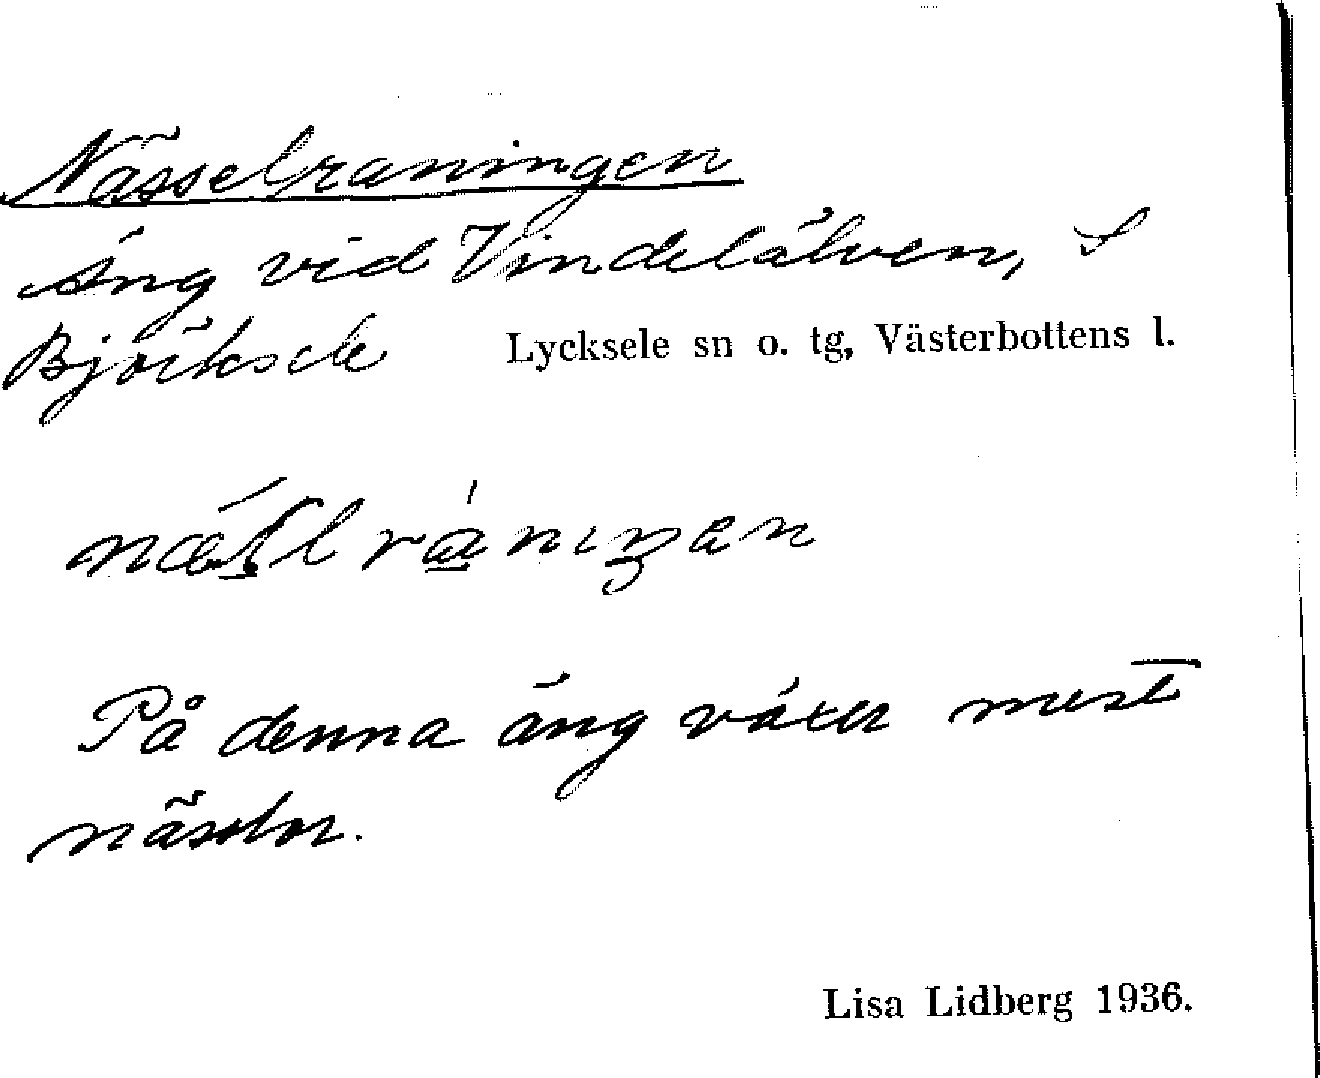 Nässelraningen
äng vid Vindelälven, S
Björksele Lycksele sn o. tg, Västerbottens l.
På denna äng växer mest
nässlor.
Lisa Lidberg 1936.